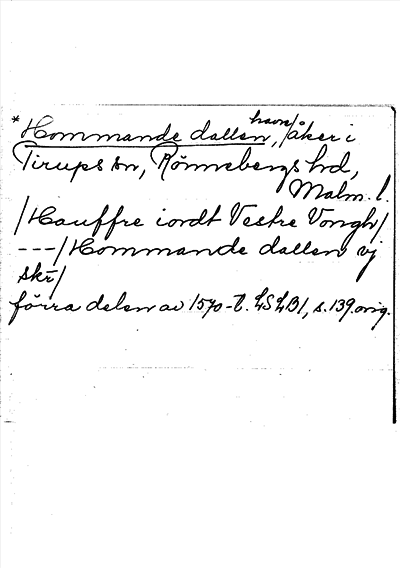 *Hommande dallen, havre/åker i
Tirups sn, Rönnebergs hd,
Malm. l.
/Hauffre iordt Vestre Vongh/
---/Hommande dallen vj
skr/
förra delen av 1570-t. LSLB1, s. 139. orig.